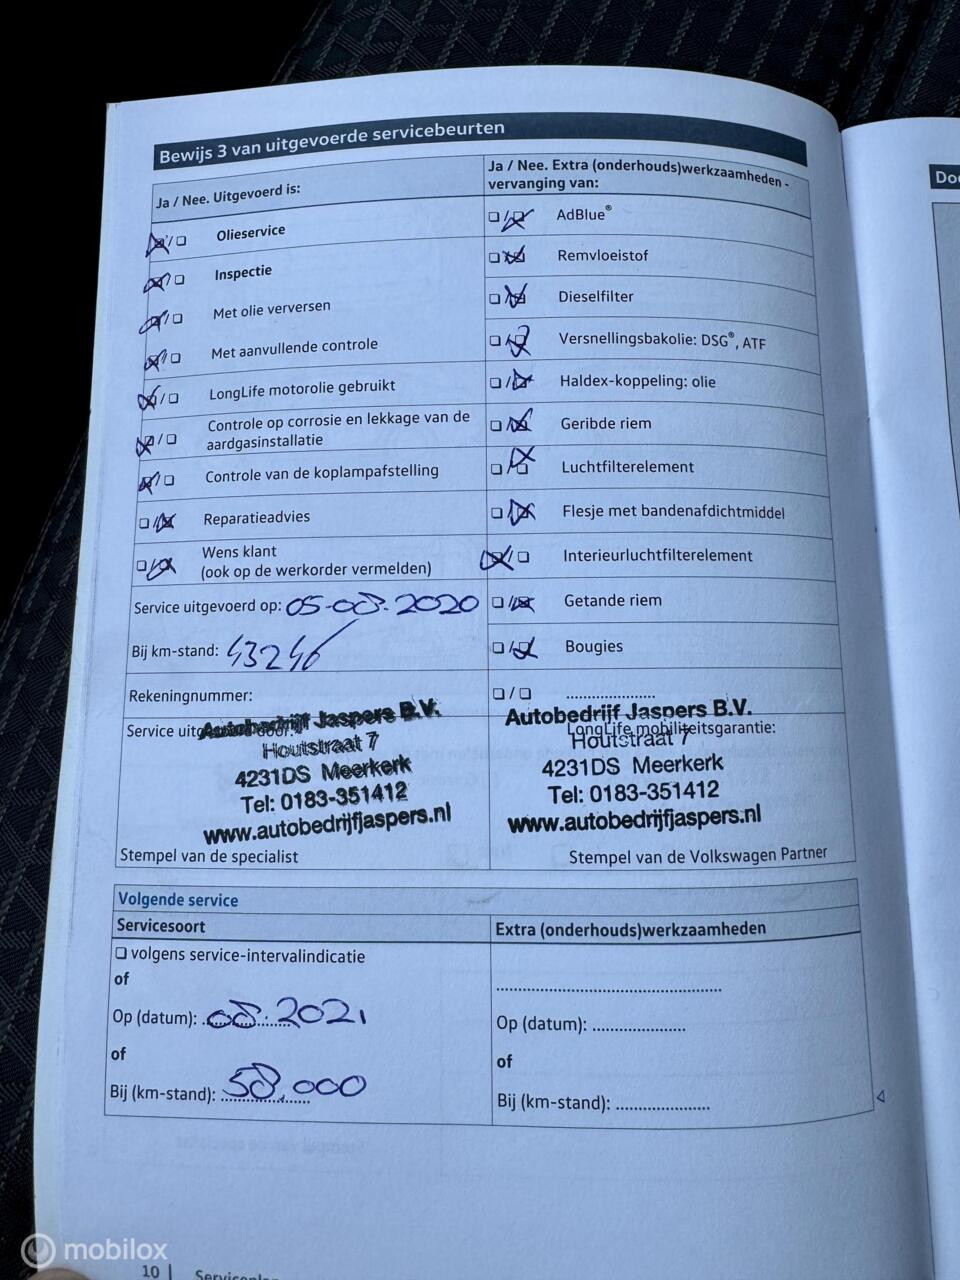 Bewijs 3 van uitgevoerde servicebeurten
Ja / Nee. Uitgevoerd is:
Olieservice
Inspectie
Met olie verversen
Met aanvullende controle
LongLife motorolie gebruikt
Controle op corrosie en lekkage van de
aardgasinstallatie
Controle van de koplampafstelling
Reparatieadvies
Wens klant
(ook op de werkorder vermelden)
Service uitgevoerd op: 05-08-2020
Bij km-stand: 43246
Rekeningnummer:
Ja / Nee. Extra (onderhouds)werkzaamheden -
vervanging van:
AdBlue®
Remvloeistof
Dieselfilter
Versnellingsbakolie: DSG®, ATF
Haldex-koppeling: olie
Geribde riem
Luchtfilterelement
Flesje met bandenafdichtmiddel
Interieurluchtfilterelement
Getande riem
Bougies
....................
Service uitgevoerd door:
Autobedrijf Jaspers B.V.
Houtstraat 7
4231DS Meerkerk
Tel: 0183-351412
www.autobedrijfjaspers.nl
Stempel van de specialist
Autobedrijf Jaspers B.V.
LongLife mobiliteitsgarantie:
Houtstraat 7
4231DS Meerkerk
Tel: 0183-351412
www.autobedrijfjaspers.nl
Stempel van de Volkswagen Partner
Volgende service
Servicesoort
volgens service-intervalindicatie
of
Op (datum): 08.2021
of
Bij (km-stand): 58.000
Extra (onderhouds)werkzaamheden
Op (datum): .....................
of
Bij (km-stand): .....................
10 |
mobilox